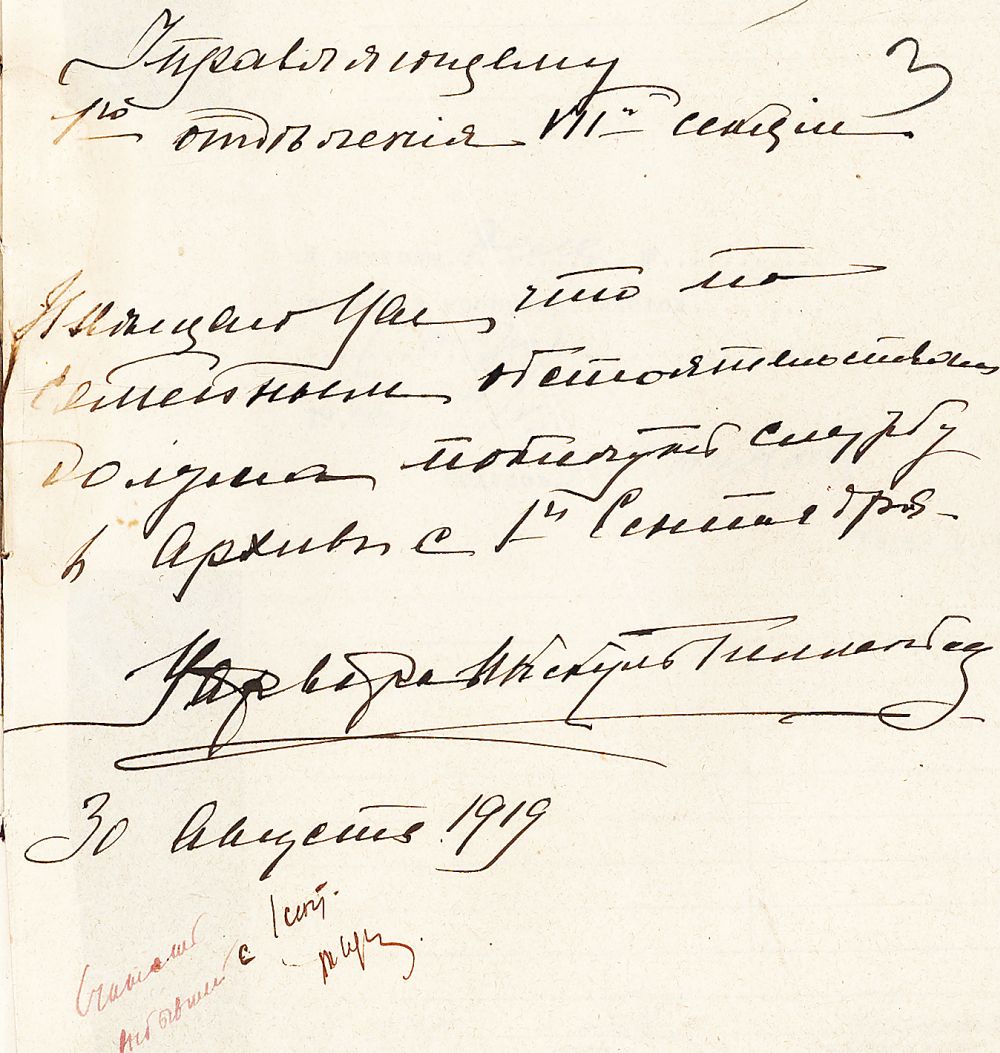 Управляющему 3
1го отделенія VIIй секціи
Извѣщаю Вас, что по
Семейным обстоятельствам
должна покинуть службу
в Архивѣ с 1го Сентября
Варвара Икскуль Гилленбанд
30 Августа 1919
Считать
выбывшей с 1 сент.